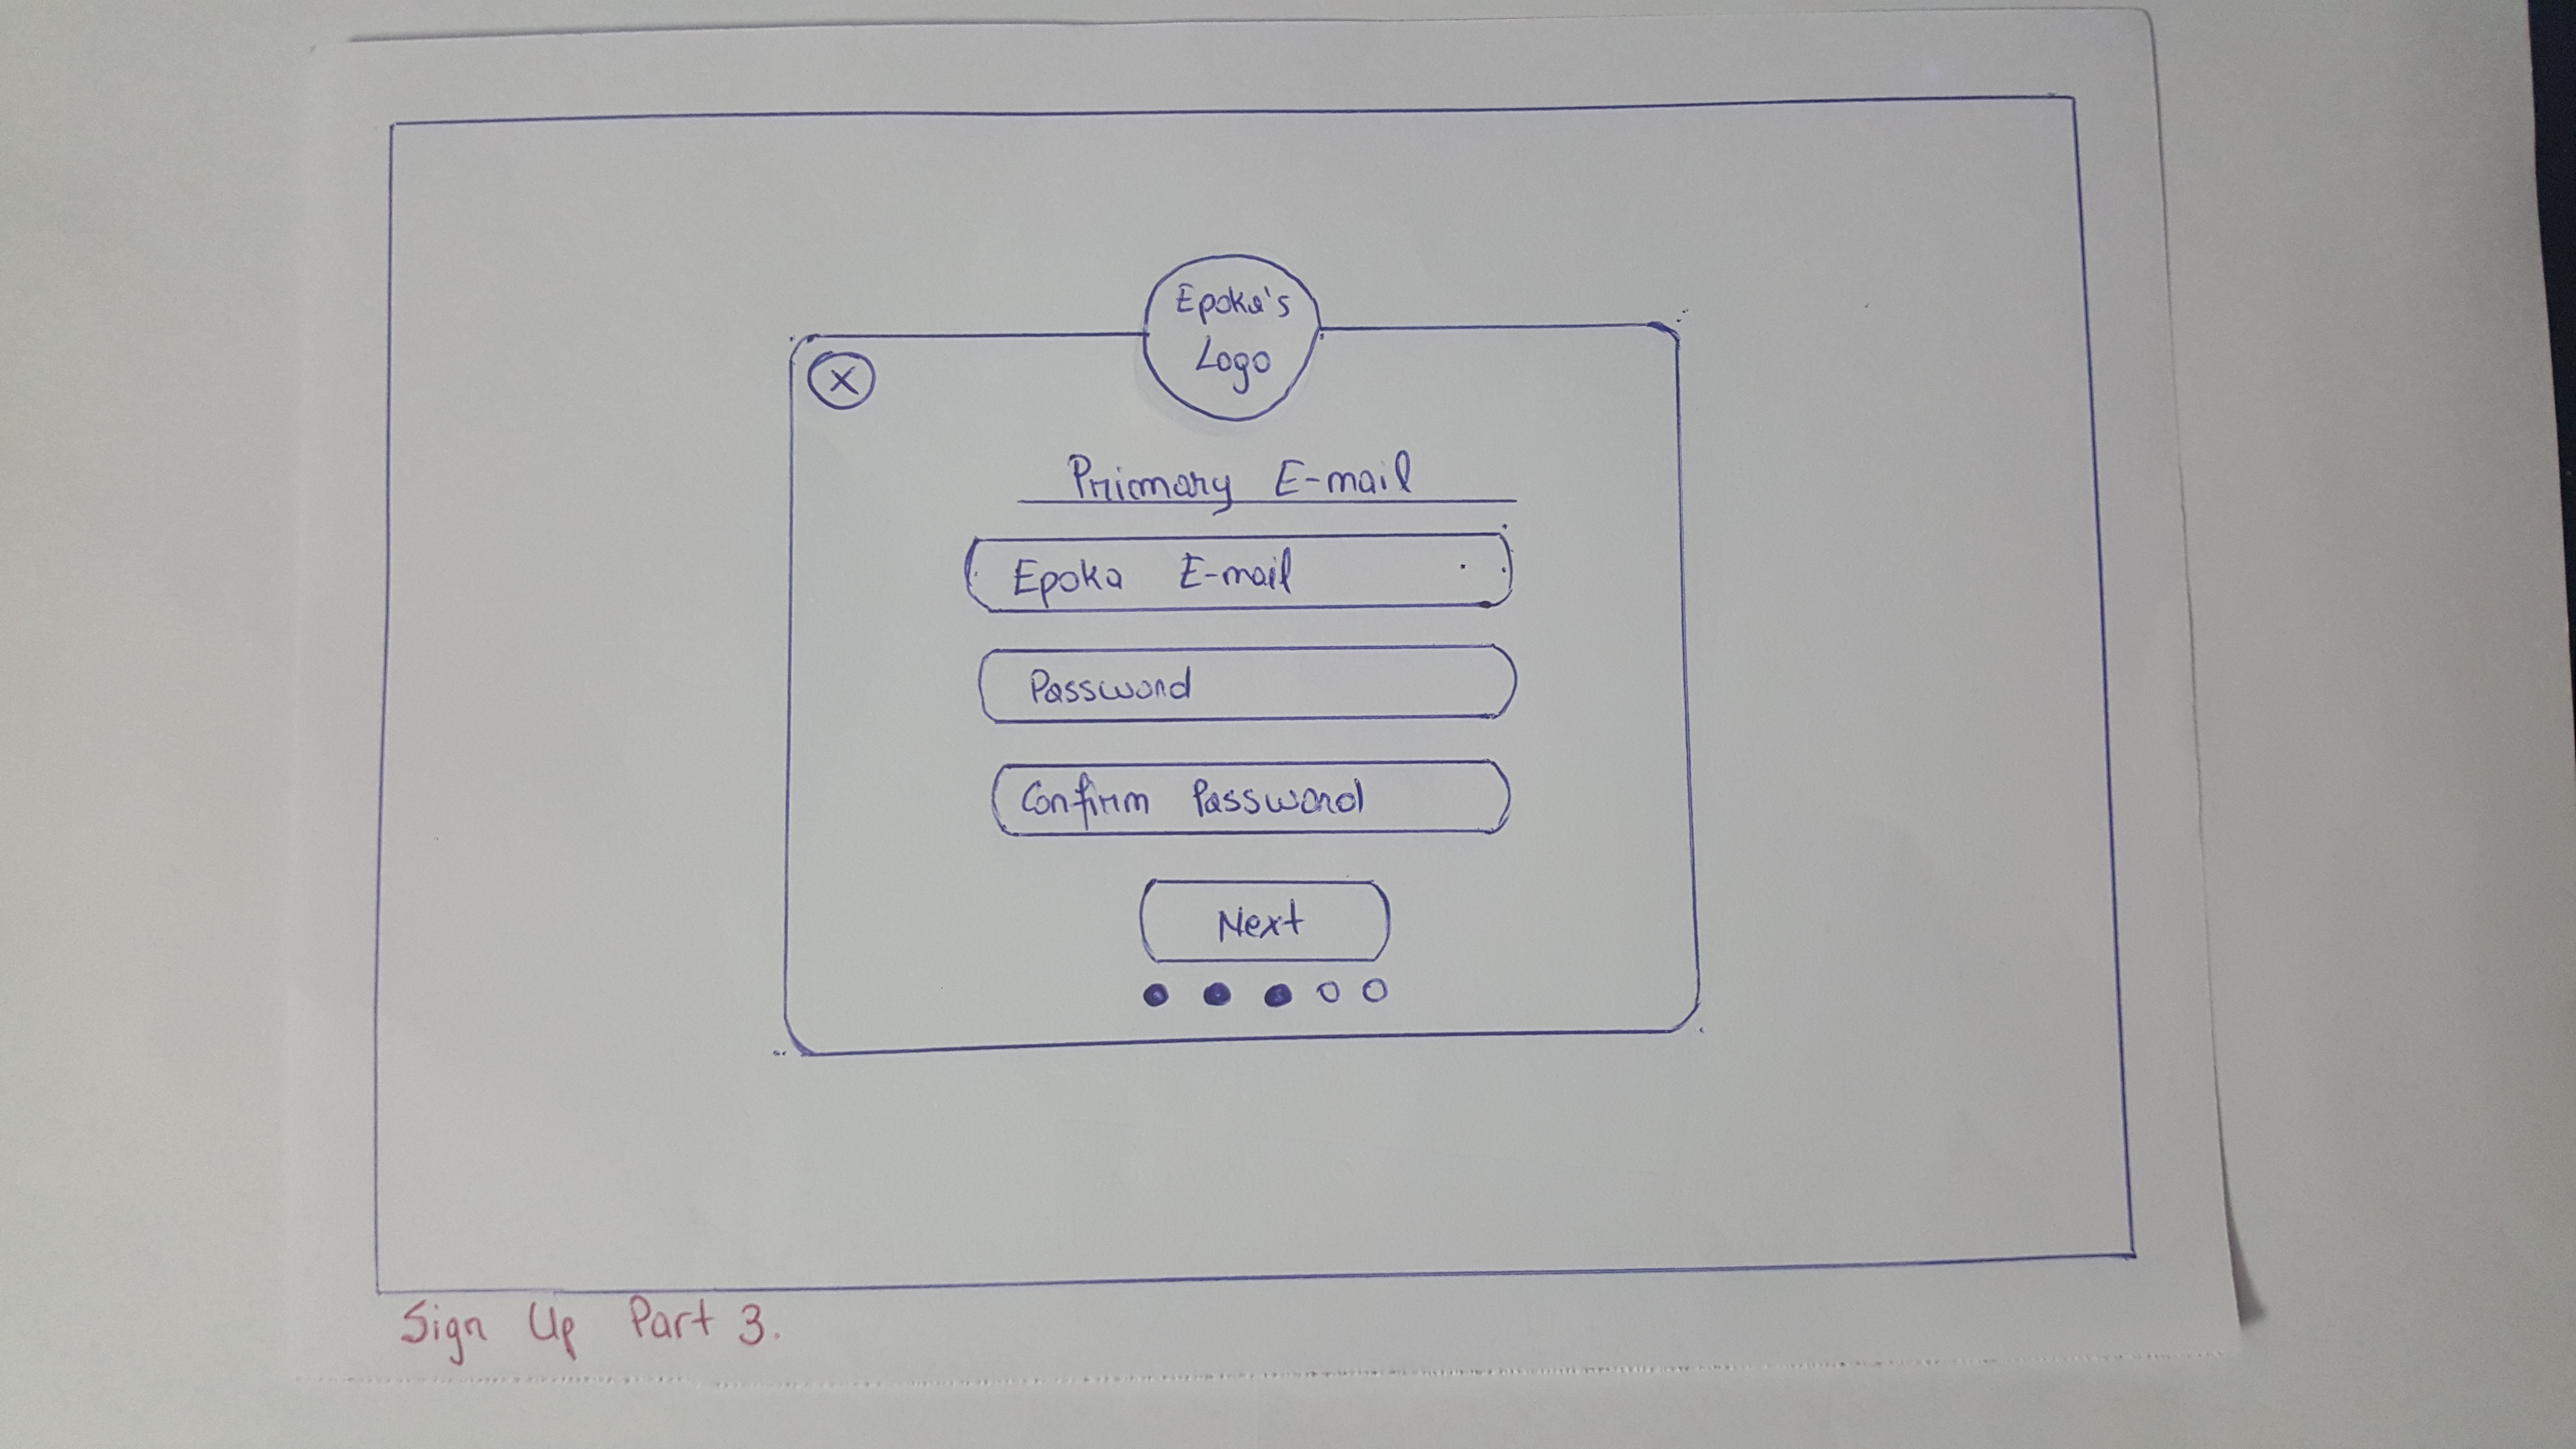 Epoka's
Logo
X
Primary E-mail
Epoka E-mail
Password
Confirm Password
Next
Sign Up Part 3.